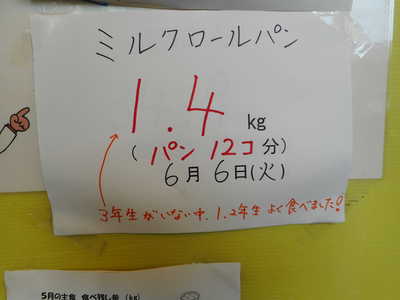 ミルクロールパン
1.4 kg
(パン 12コ分)
6月 6日(火)
3年生がいない中、1、2年生よく食べました!
5月の主食 食べ残し量 (kg)